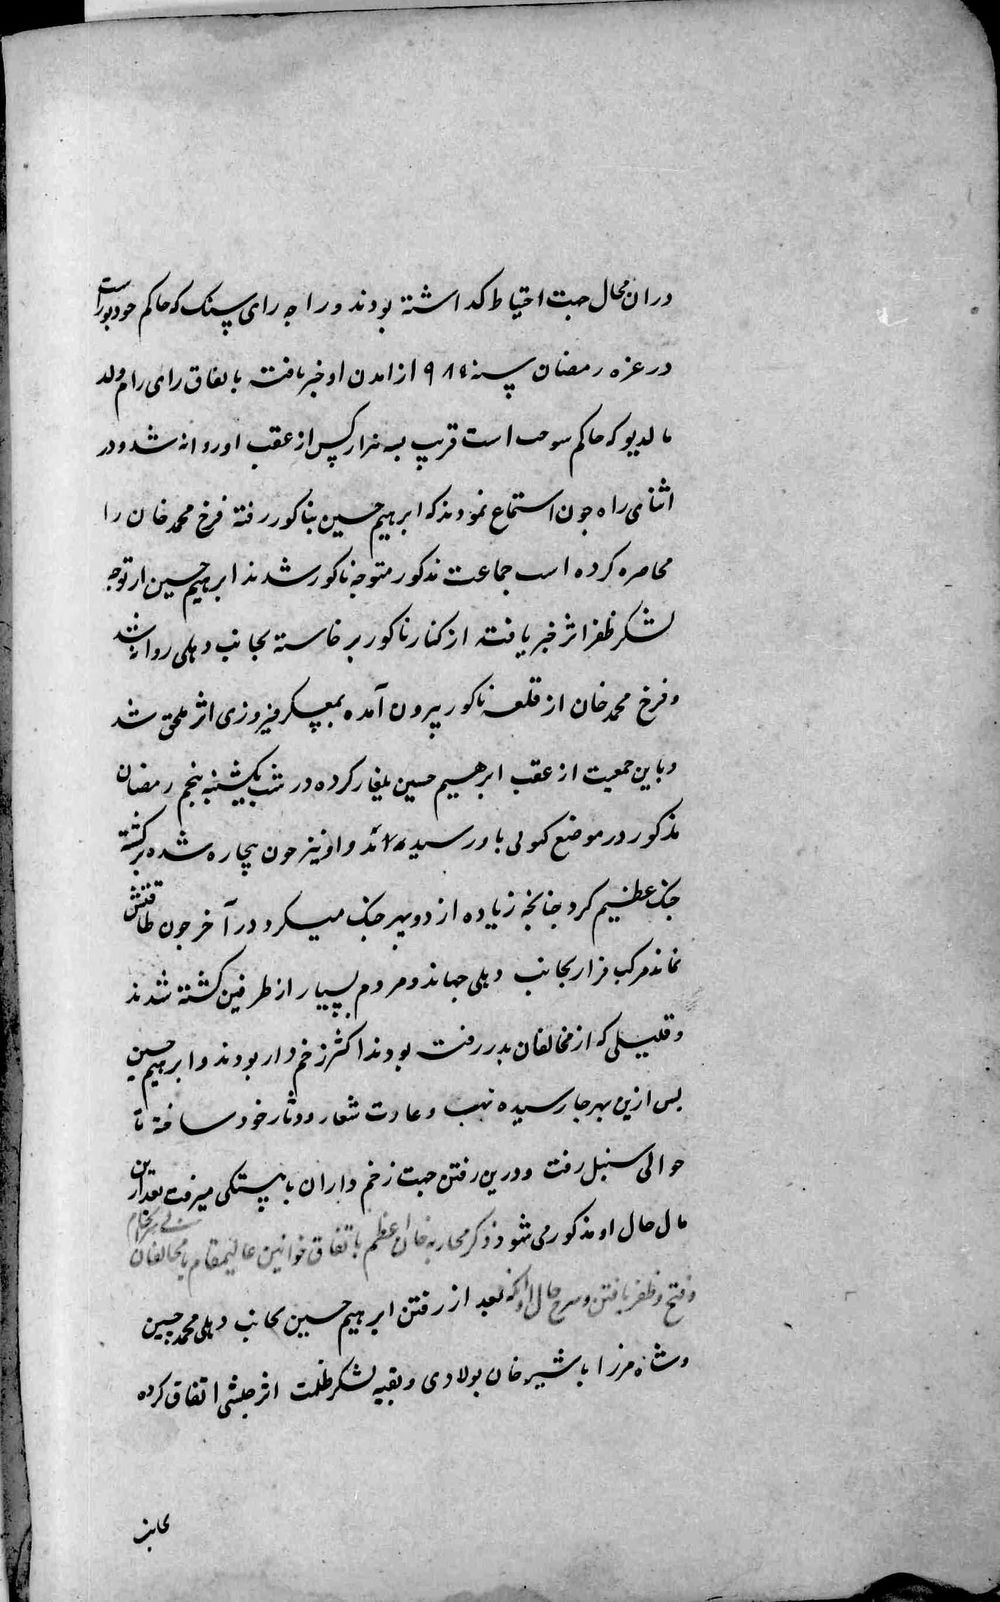 دران محال جهت احتیاط کذاشته بودند و راجه رای سنک که حاکم جودپور است
در غزه رمضان سنه ۹۸۰ از امدن او خبر یافته باتفاق رای رام ولد
مالدیو که حاکم سوجت است قریب به هزار کس از عقب او روانه شد و در
اثنای راه جون استماع نمودند که ابرهیم حسین بناکور رفته فرخ محمد خان را
محاصره کرده است جماعت مذکور متوجه ناکور شدند ابرهیم حسین از توجه
لشکر ظفر اثر خبر یافته از کنار ناکور برخاسته بجانب دهلی روانه شد
و فرخ محمد خان از قلعه ناکور بیرون آمده بعسکر فیروزی اثر ملحق شد
و باین جمعیت از عقب ابرهیم حسین یلغار کرده در شب یکشنبه پنجم رمضان
مذکور در موضع کتولی باو رسیدند و او نیز جون بیچاره شده برکشته
جنک عظیم کرد جنانجه زیاده از دو پهر جنک میکرد در آخر جون طاقتش
نماند مرکب فرار بجانب دهلی جهاند و مردم بسیار از طرفین کشته شدند
و قلیلی که از مخالفان بدر رفت بودند اکثر زخم دار بودند و ابرهیم حسین
بس ازین بهر جا رسیده نهب و غارت شعار و دثار خود ساخته تا
حوالی سنبل رفت و درین رفتن جهت زخم داران باهستکی میرفت بعد ازین
مال حال او مذکور می شود ذکر محاربه خان اعظم باتفاق خوانین عالیمقام با مخالفان
و فتح و ظفر یافتن و شرح حال او انکه بعد از رفتن ابرهیم حسین بجانب دهلی محمد حسین
و شاه مرزا با شیر خان پولادی و بقیه لشکر ظلمت اثر حبشی اتفاق کرده
بجانب